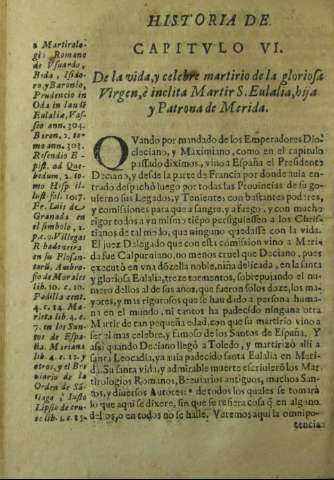 HISTORIA DE
CAPITVLO VI.
De la vida, y celebre martirio de la gloriosa
Virgen, è inclita Martir S. Eulalia, hija
y Patrona de Merida.
a Martirolo-
gi: Romano
de Vsuardo,
Beda, Isido-
ro, y Baronio,
Prudencio in
Oda in laudẽ
Eulaliæ, Vas-
sæo ann. 304.
Baron. 2. to-
mo ann. 303.
Resendio E-
pist. ad Que-
bedum. 2. to-
mo Hisp. il-
lust. fol. 1017.
Fr. Luis de
Granada en
el simbolo, 2.
p. c. Villegas
Ribadeneira
en su Flosan-
torũ, Ambro-
sio de Morales
lib. 10. c. 10.
Padilla cent.
4. c. 24. Ma-
rieta lib. 4. c.
7. en los San-
tos de Espa-
ña. Mariana
lib. 4. c. 12. y
otros, y el Bre
uiario de la
Orden de Sã-
tiago; Iusto
Lipsio de cru-
ce lib. 2. c. 15.
QVando por mandado de los Emperadores Dio-
cleciano, y Maximiano, como en el capitulo
passado diximos, vino a España el Presidente
Daciano, y desde la parte de Francia por donde auia en-
trado despachò luego por todas las Prouincias de su go-
uierno sus Legados, y Tenientes con bastantes poderes,
y comissiones para que a sangre, y a fuego, y con mucho
rigor todos a vn mismo tiẽpo persiguiessen a los Chris-
tianos de tal modo, que ninguno quedasse con la vida.
El juez Dalegado que con esta comission vino a Meri-
da fue Calpurniano, no menos cruel que Daciano, pues
executò en vna dõzella noble, niña delicada, en la santa
y gloriosa Eulalia, treze tormentos, sobrepujando el nu-
mero dellos al de sus años, que fueron solos doze, los ma-
yores, y mas rigurosos que se han dado a persona huma-
na en el mundo, ni tantos ha padecido ninguna otra
Martir de tan pequeña edad, con que su martirio vino a
ser el mas celebre, y famoso de los Santos de España. Y
assi quando Daciano llegò a Toledo, y martirizò alli a
santa Leocadia, ya auia padecido santa Eulalia en Meri-
da. Su santa vida, y admirable muerte escriuierõ los Mar-
tirologios Romanos, Breuiarios antiguos, muchos San-
tos, y diuersos Autores: de todos los quales se tomarà
lo que aqui se dixere, sin que se refiera cosa que en alguno
dellos, o en todos no se halle. Veremos aqui la omnipo-
tencia